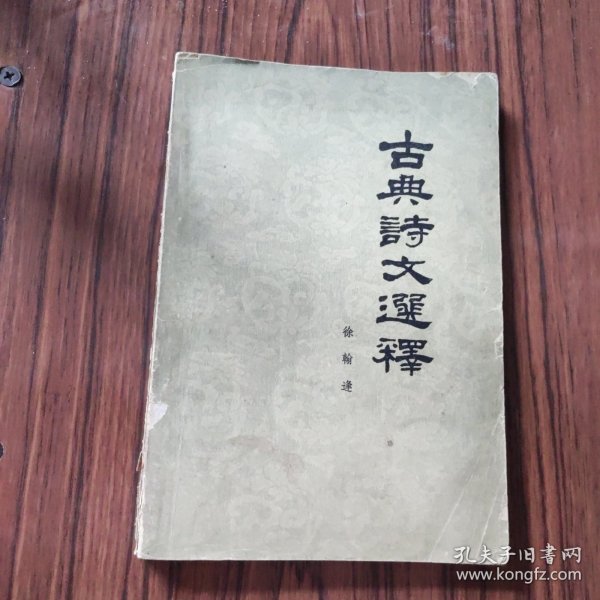 古典詩文選釋
徐翰逢
孔夫子旧書网
www.kongfz.com